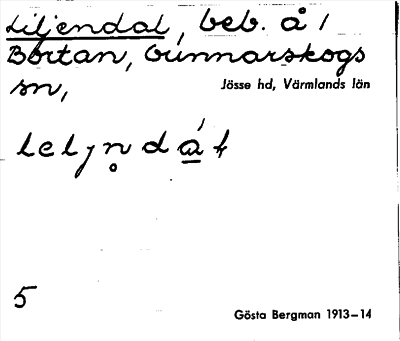 Liljendal, beb. å /
Bortan, Gunnarskogs
sn,
Jösse hd, Värmlands län
5
Gösta Bergman 1913–14